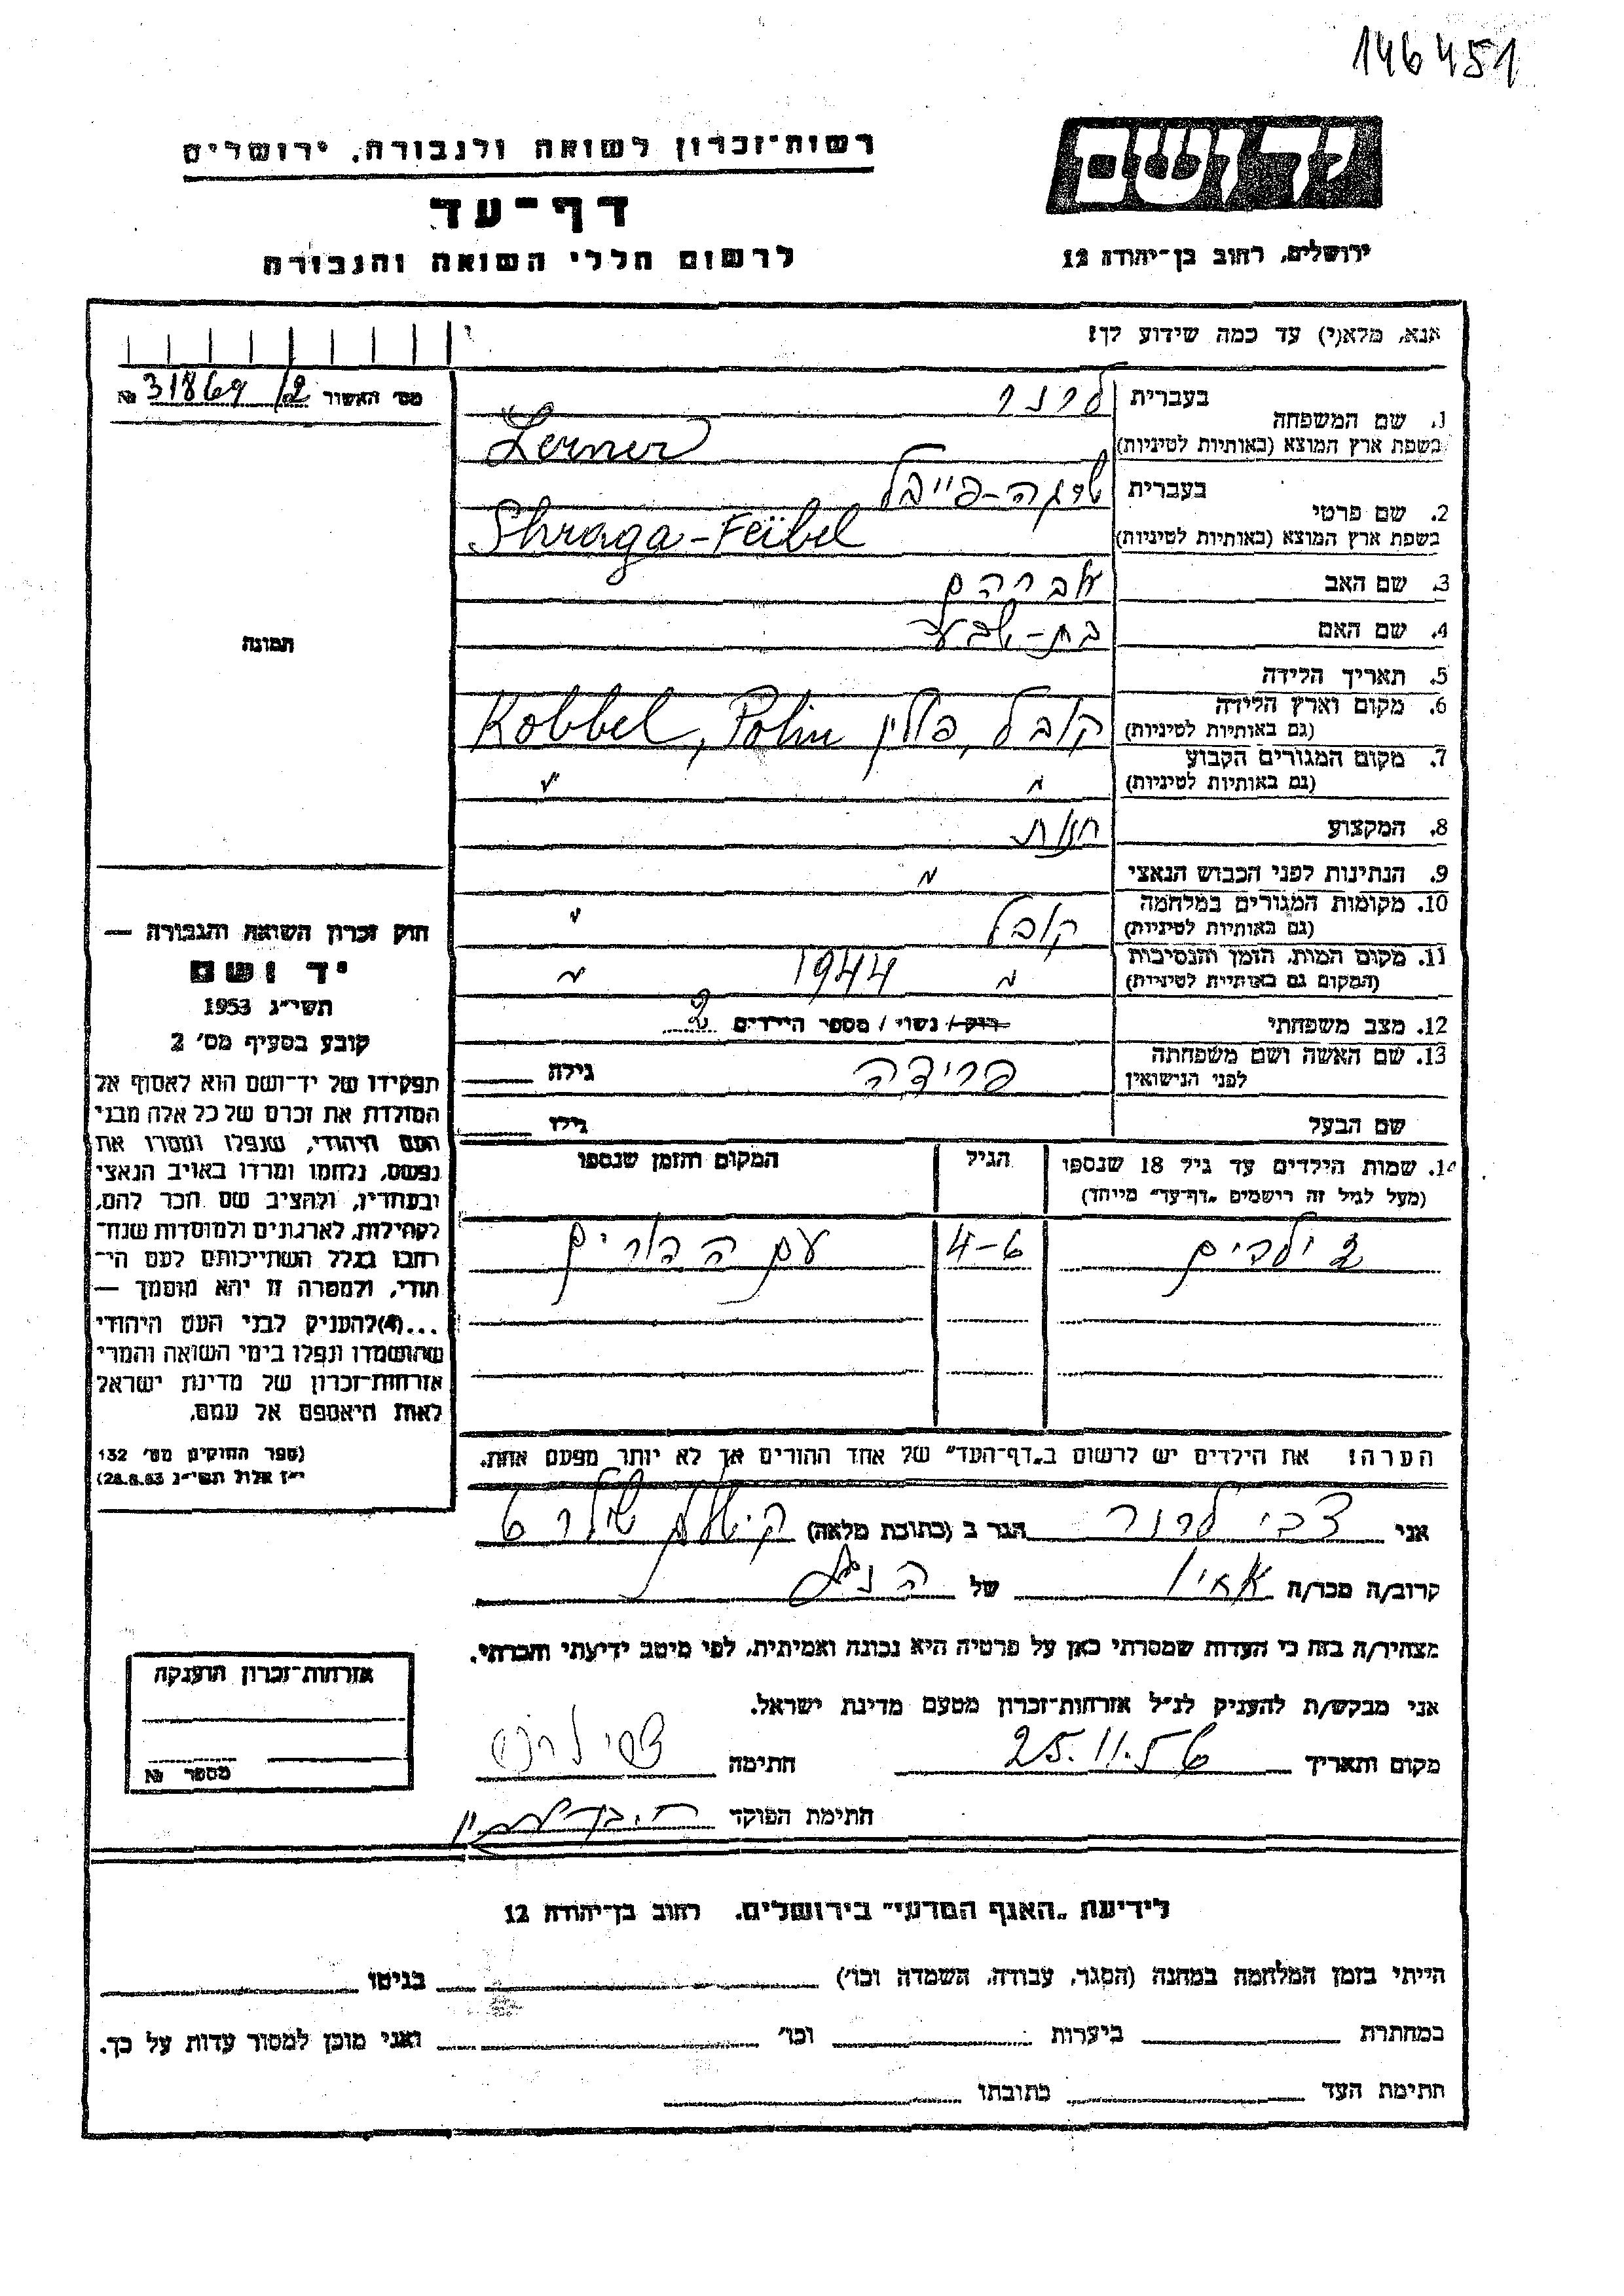 146451
יד ושם
ירושלים, רחוב בן־יהודה 12
רשות־זכרון לשואה ולגבורה, ירושלים
דף־עד
לרשום חללי השואה והגבורה
אנא, מלא(י) עד כמה שידוע לך!
מס׳ האשור 31869/2 №
1. שם המשפחה
בעברית לרנר
בשפת ארץ המוצא (באותיות לטיניות) Lerner
2. שם פרטי
בעברית שרגה-פייבל
בשפת ארץ המוצא (באותיות לטיניות) Shraga-Feïbel
3. שם האב אברהם
4. שם האם בת-שבע
5. תאריך הלידה
6. מקום וארץ הלידה
(גם באותיות לטיניות) קובל, פולין Kobbel, Polin
7. מקום המגורים הקבוע
(גם באותיות לטיניות) " "
8. המקצוע חנות
9. הנתינות לפני הכבוש הנאצי "
10. מקומות המגורים במלחמה
(גם באותיות לטיניות) קובל "
11. מקום המות, הזמן והנסיבות
(המקום גם באותיות לטיניות) " 1944 "
12. מצב משפחתי רווק / נשוי / מספר הילדים 2
13. שם האשה ושם משפחתה
לפני הנישואין פרידה גילה
שם הבעל גילו
14. שמות הילדים עד גיל 18 שנספו
(מעל לגיל זה רישמים „דף־עד״ מייחד)
הגיל
המקום והזמן שנספו
2 ילדים 4-6 עם ההורים
הערה! את הילדים יש לרשום ב„דף־העד״ של אחד ההורים אך לא יותר מפעם אחת.
תמונה
חוק זכרון השואה והגבורה —
יד ושם
תשי״ג 1953
קובע בסעיף מס׳ 2
תפקידו של יד־ושם הוא לאסוף אל
המולדת את זכרם של כל אלה מבני
העם היהודי, שנפלו ומסרו את
נפשם, נלחמו ומרדו באויב הנאצי
ובעוזריו, ולהציב שם וזכר להם,
לקהילות, לארגונים ולמוסדות שנח־
רבו בגלל השתייכותם לעם הי־
הודי, ולמטרה זו יהא מוסמך —
...(4)להעניק לבני העם היהודי
שהושמדו ונפלו בימי השואה והמרי
אזרחות־זכרון של מדינת ישראל
לאות היאספם אל עמם.
(ספר החוקים מס׳ 132
י״ז אלול תשי״ג 28.8.53)
אני צבי לרנר הגר ב (כתובת מלאה)
קרוב/ה מכר/ה של
מצהיר/ה בזה כי העדות שמסרתי כאן על פרטיה היא נכונה ואמיתית, לפי מיטב ידיעתי והכרתי.
אני מבקש/ת להעניק לנ״ל אזרחות־זכרון מטעם מדינת ישראל.
מקום ותאריך 25.11.56 חתימה צבי לרנר
חתימת הפוקד
אזרחות־זכרון הוענקה
מספר №
לידיעת „האגף המדעי״ בירושלים, רחוב בן־יהודה 12
הייתי בזמן המלחמה במחנה (הסגר, עבודה, השמדה וכו׳) בגיטו
במחתרת ביערות וכו׳ ואני מוכן למסור עדות על כך.
חתימת העד כתובתו